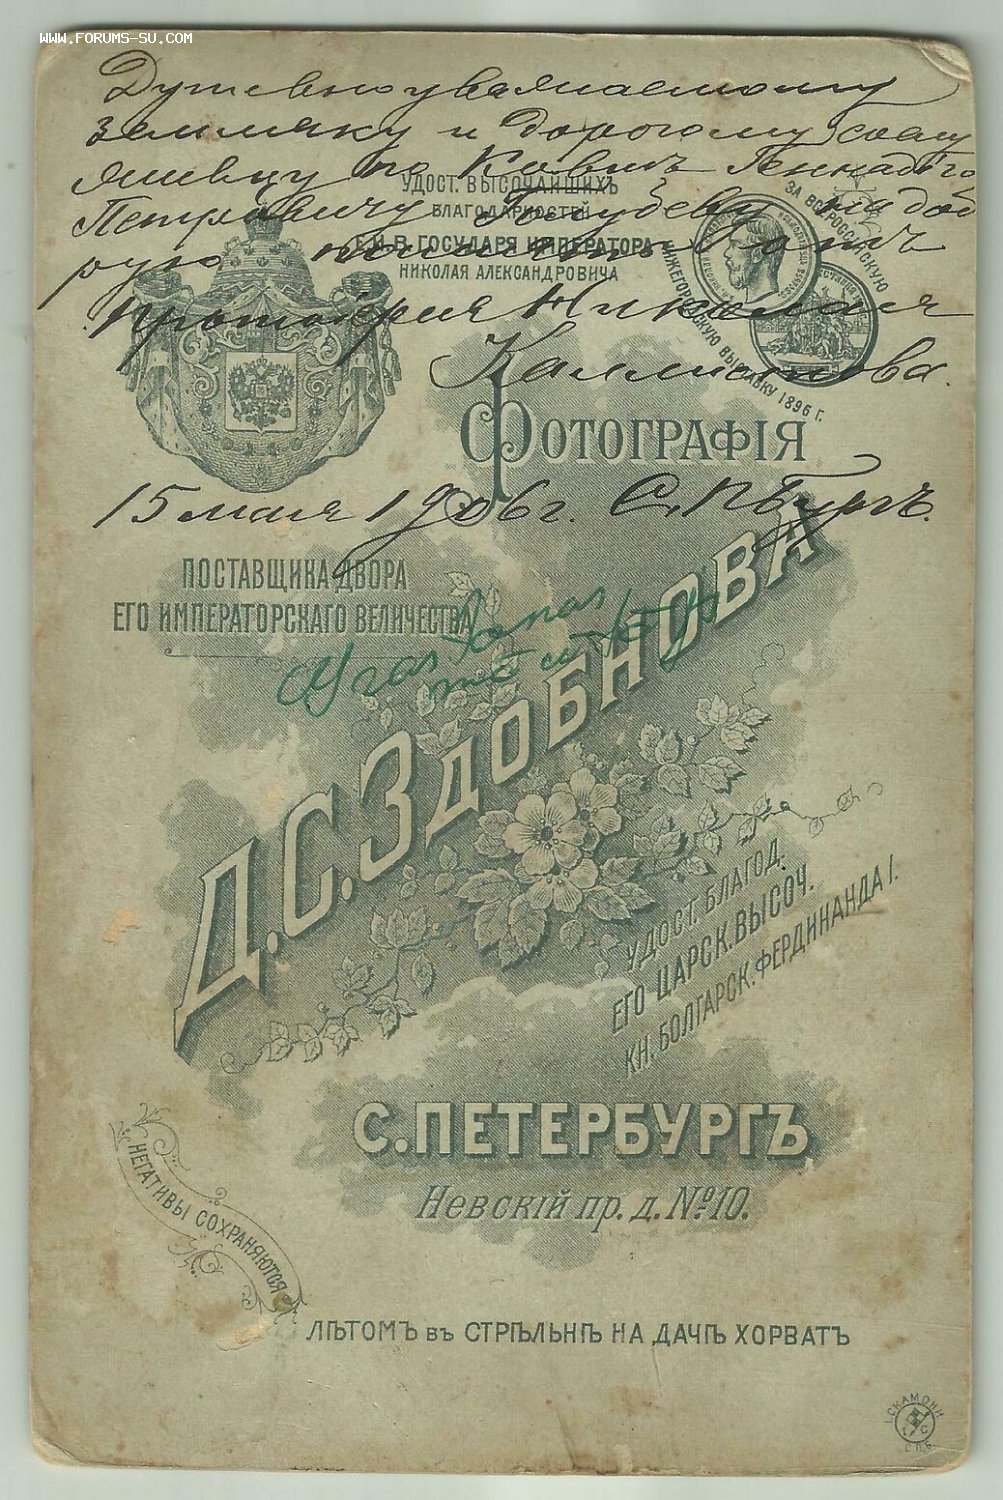 www.forums-su.com
Душевноуважаемому
земляку и дорогому сослу
живцу по Геннадiю
Петровичу на доб
рую память отъ
протоiерея Николая
Каллистова.
УДОСТ. ВЫСОЧАЙШИХЪ
БЛАГОДАРНОСТЕЙ
Е.И.В. ГОСУДАРЯ ИМПЕРАТОРА
НИКОЛАЯ АЛЕКСАНДРОВИЧА
ЗА ВСЕРОССІЙСКУЮ
НИЖЕГОРОДСКУЮ ВЫСТАВКУ 1896 Г.
ФОТОГРАФІЯ
15 мая 1906 г. С. Пбургъ.
ПОСТАВЩИКА ДВОРА
ЕГО ИМПЕРАТОРСКАГО ВЕЛИЧЕСТВА
Д.С.ЗДОБНОВА
УДОСТ. БЛАГОД.
ЕГО ЦАРСК. ВЫСОЧ.
КН. БОЛГАРСК. ФЕРДИНАНДА I.
С. ПЕТЕРБУРГЪ
Невскій пр. д. № 10.
НЕГАТИВЫ СОХРАНЯЮТСЯ
ЛѢТОМЪ въ СТРѢЛЬНѢ НА ДАЧѢ ХОРВАТЪ
І. СКАМОНИ
С.П.Б.